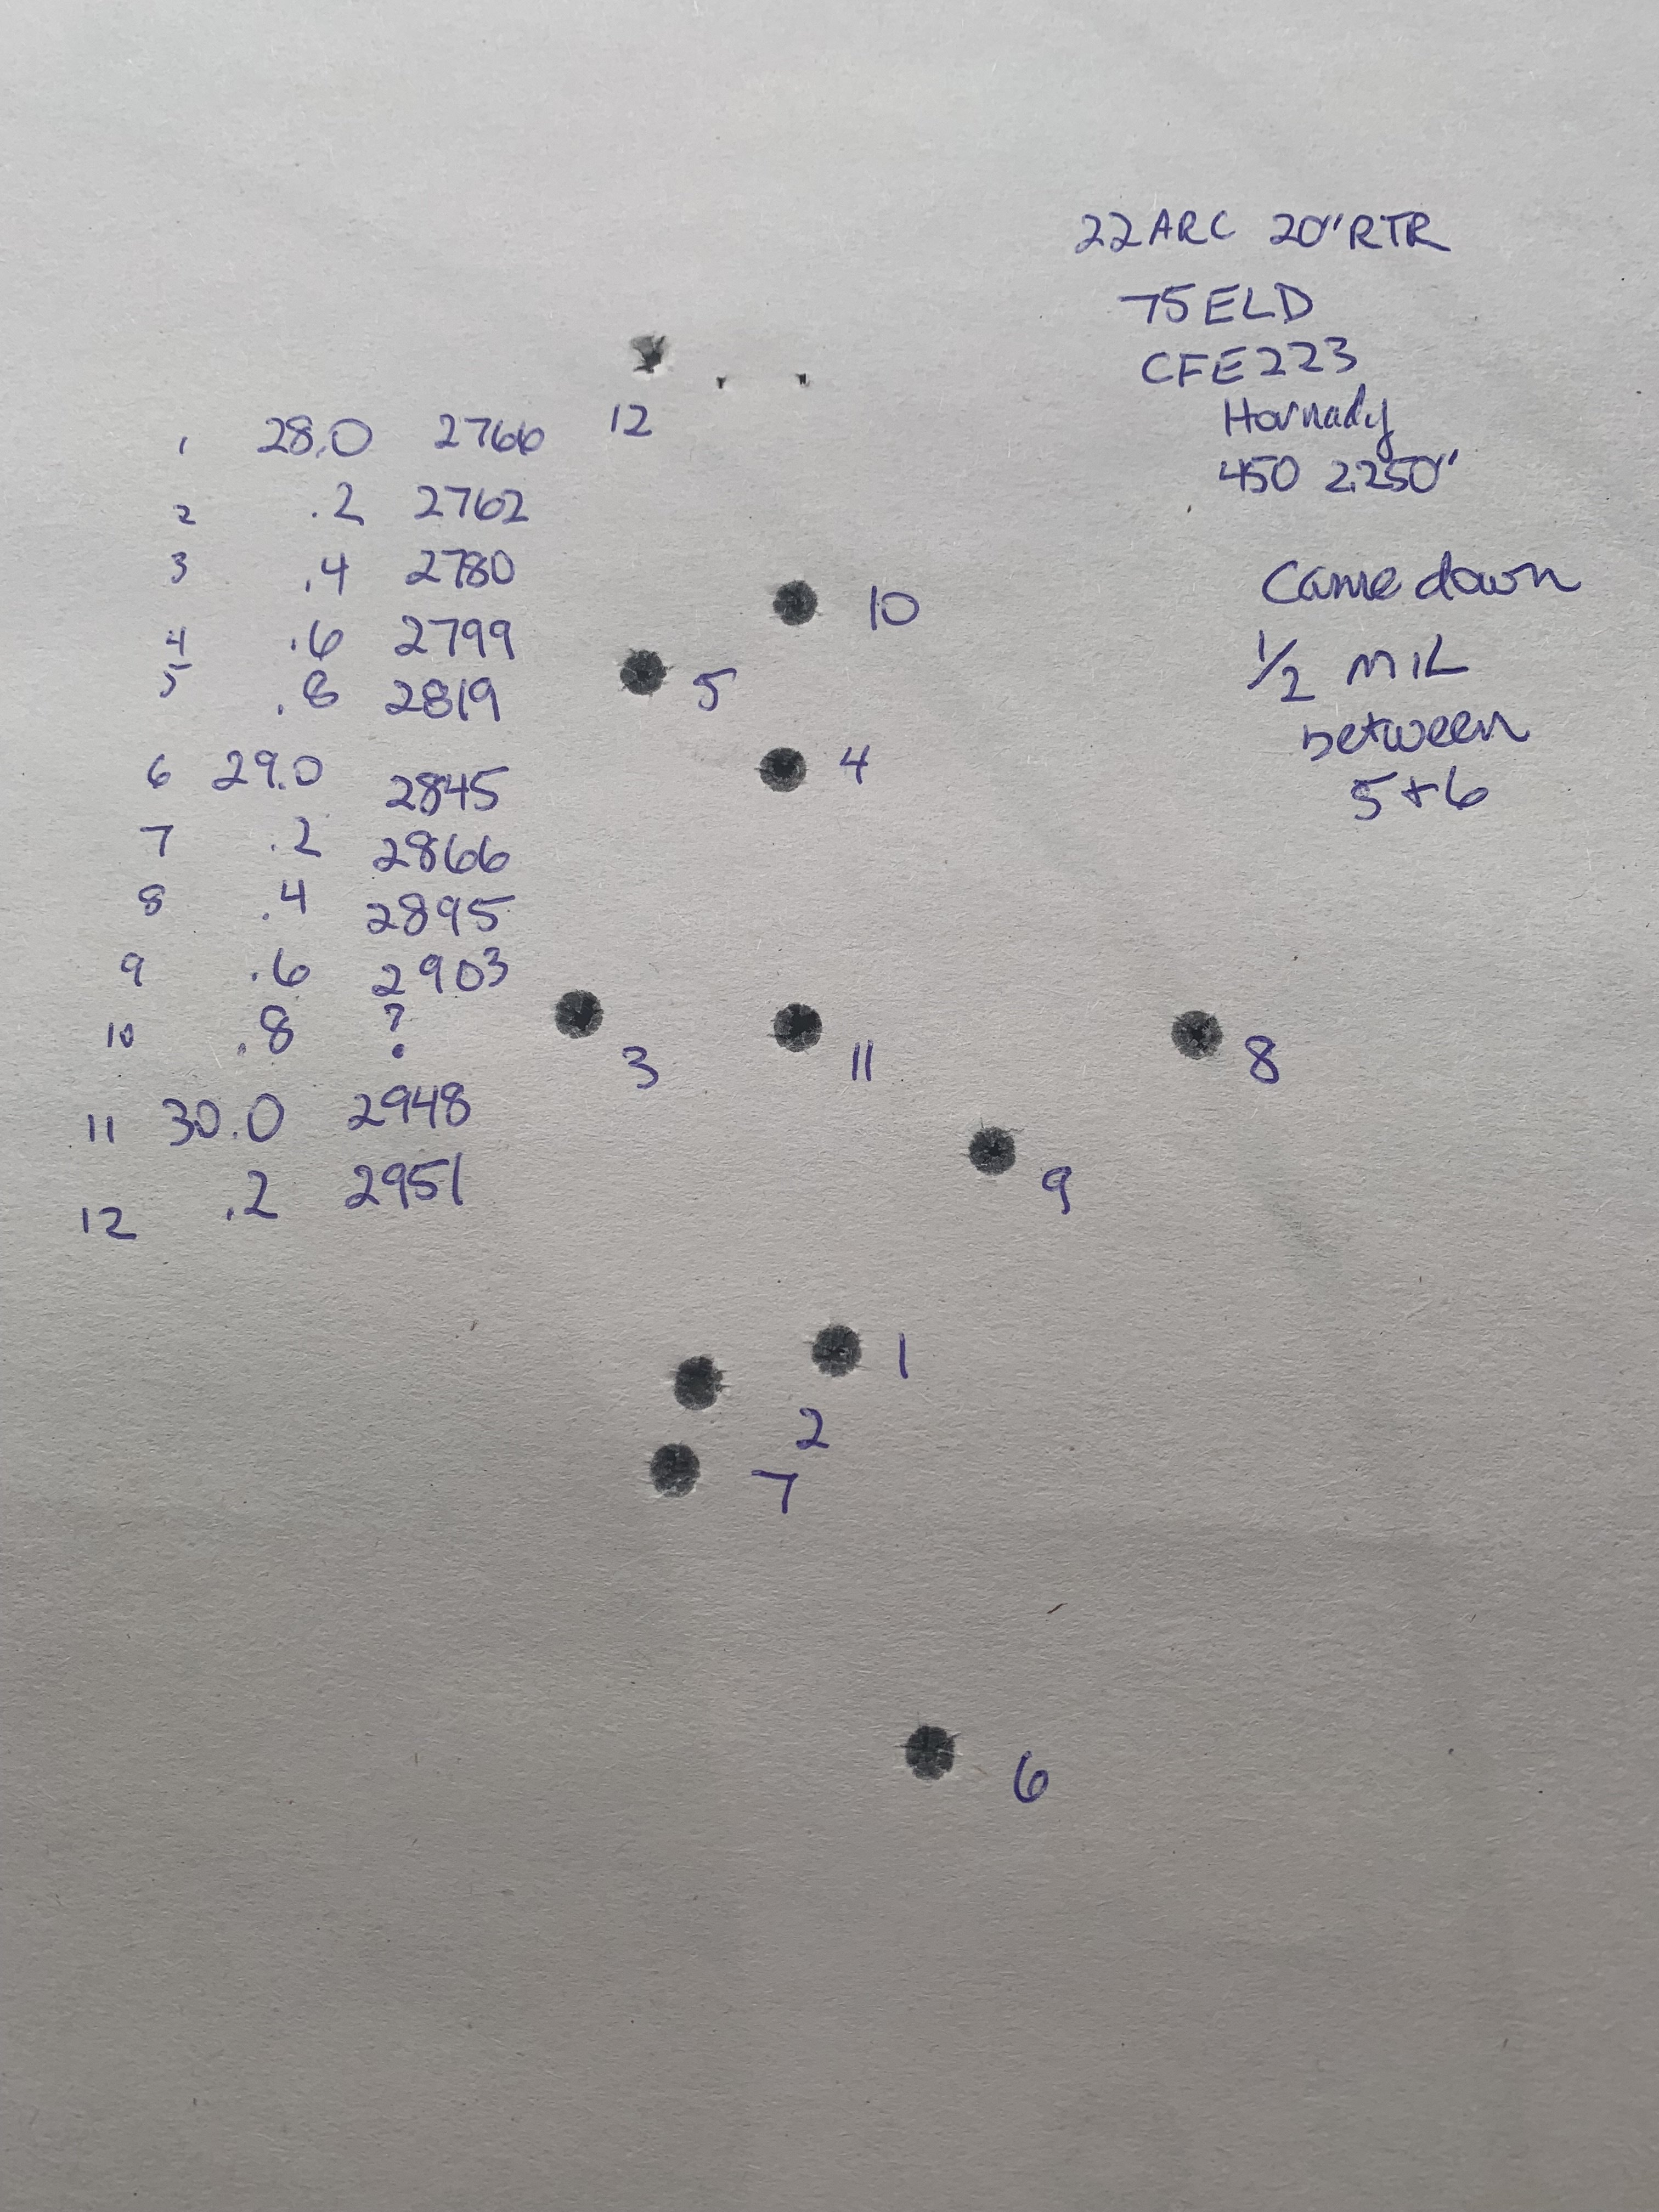 22ARC 20"RTR
75 ELD
CFE223
Hornady
450 2.250"
Came down
1/2 MIL
between
5+6
1 28.0 2766
2 .2 2762
3 .4 2780
4 .6 2799
5 .8 2819
6 29.0 2845
7 .2 2866
8 .4 2895
9 .6 2903
10 .8 ?
11 30.0 2948
12 .2 2951
12
10
5
4
3
11
8
9
1
2
7
6